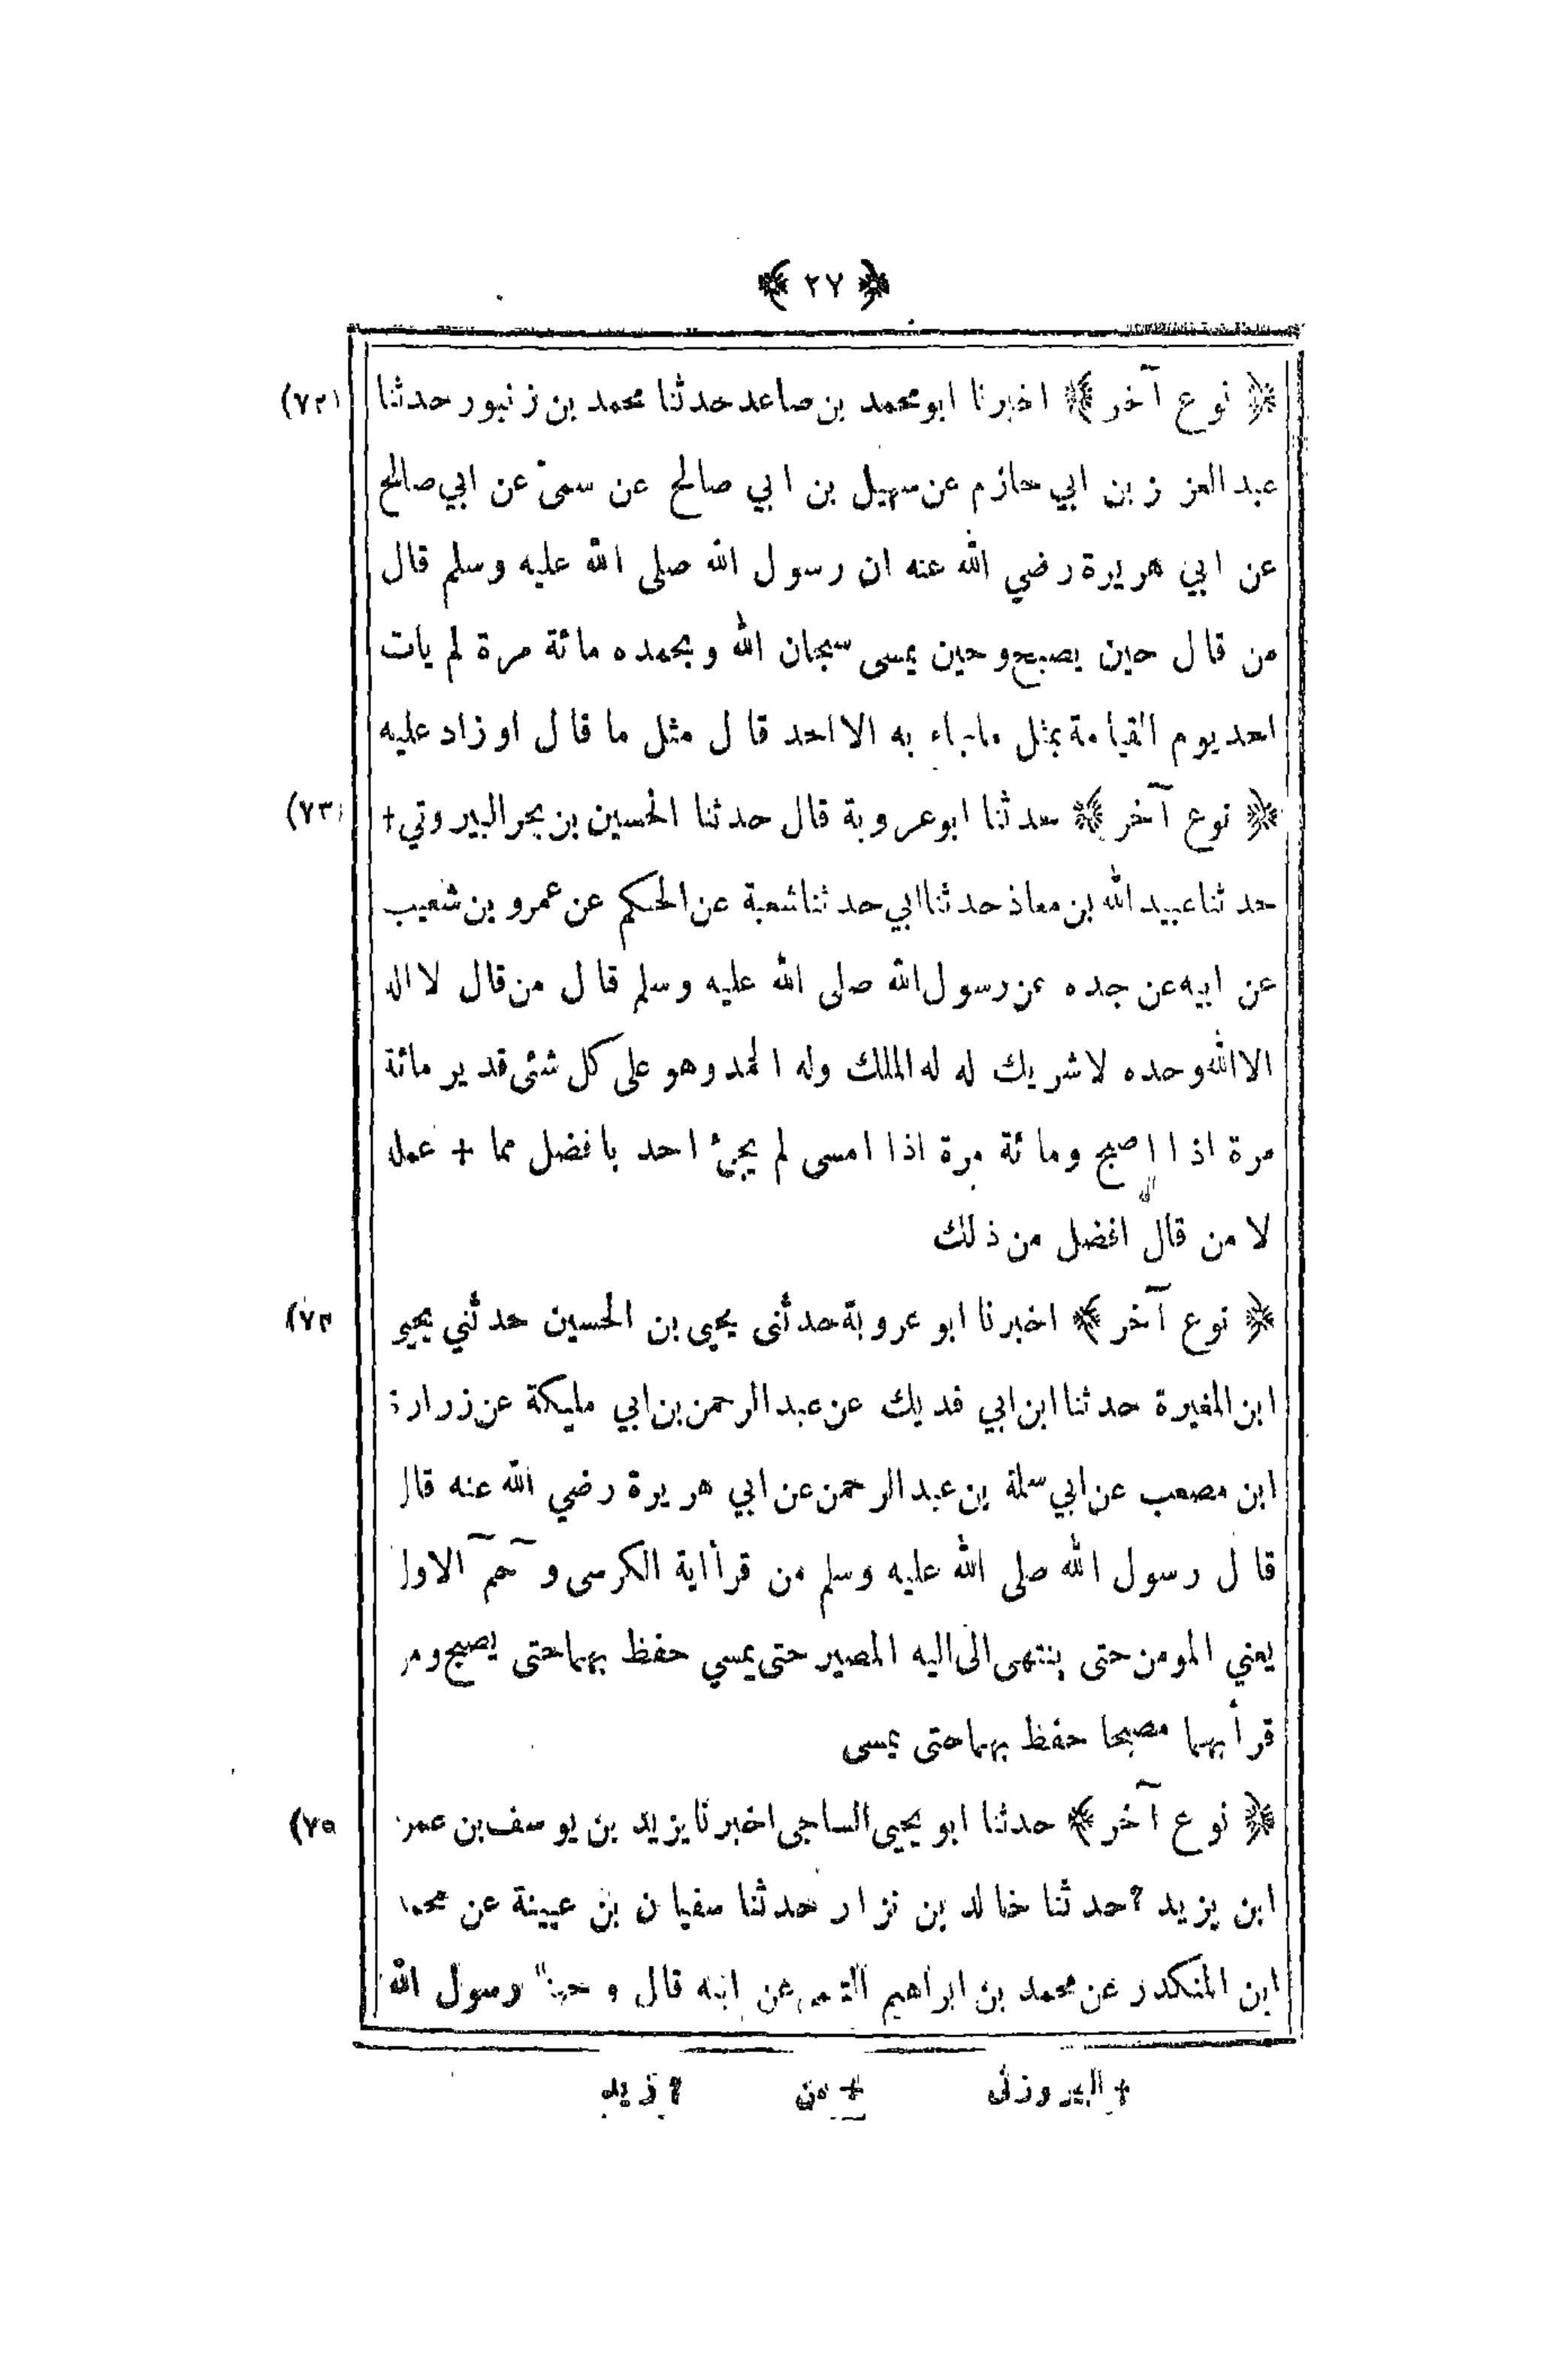 ﴿ ٢٧ ﴾
﴿ نوع آخر ﴾ اخبرنا ابومحمد بن صاعد حدثنا محمد بن زنبور حدثنا
عبد العز ز بن ابي حازم عن سهيل بن ابي صالح عن سمىّ عن ابي صالح
عن ابي هريرة رضي الله عنه ان رسول الله صلى الله عليه وسلم قال
من قال حين يصبح وحين يمسى سبحان الله وبحمده مائة مرة لم يات
احد يوم القيامة بمثل ماجاء به الا احد قال مثل ما قال او زاد عليه
(٧٣)
﴿ نوع آخر ﴾ حدثنا ابوعروبة قال حدثنا الحسين بن بحر البيروتي +
حدثنا عبيد الله بن معاذ حدثنا ابي حدثنا شعبة عن الحكم عن عمرو بن شعيب
عن ابيه عن جده عن رسول الله صلى الله عليه وسلم قال من قال لا اله
الا الله وحده لا شريك له له الملك وله الحمد وهو على كل شئى قدير مائة
مرة اذا اصبح ومائة مرة اذا امسى لم يجئ احد بافضل مما + عمل
لا من قال افضل من ذلك
﴿ نوع آخر ﴾ اخبرنا ابو عروبة حدثنى يحيى بن الحسين حدثني يحيى
ابن المغيرة حدثنا ابن ابي فديك عن عبد الرحمن بن ابي مليكة عن زرارة
ابن مصعب عن ابي سلمة بن عبد الرحمن عن ابي هريرة رضي الله عنه قال
قال رسول الله صلى الله عليه وسلم من قرأ اية الكرسى و حم الاول
يعني المومن حتى ينتهى الى اليه المصير حتى يمسي حفظ بهما حتى يصبح ومن
قرأ بهما مصبحا حفظ بهما حتى يمسى
(٧٥
﴿ نوع آخر ﴾ حدثنا ابو يحيى الساجى اخبرنا يزيد بن يوسف بن عمر
ابن يزيد ? حدثنا خالد بن نزار حدثنا سفيان بن عيينة عن محمد
ابن المنكدر عن محمد بن ابراهيم التيمى عن ابيه قال و رسول الله
+ البيروذى + من ? زيد